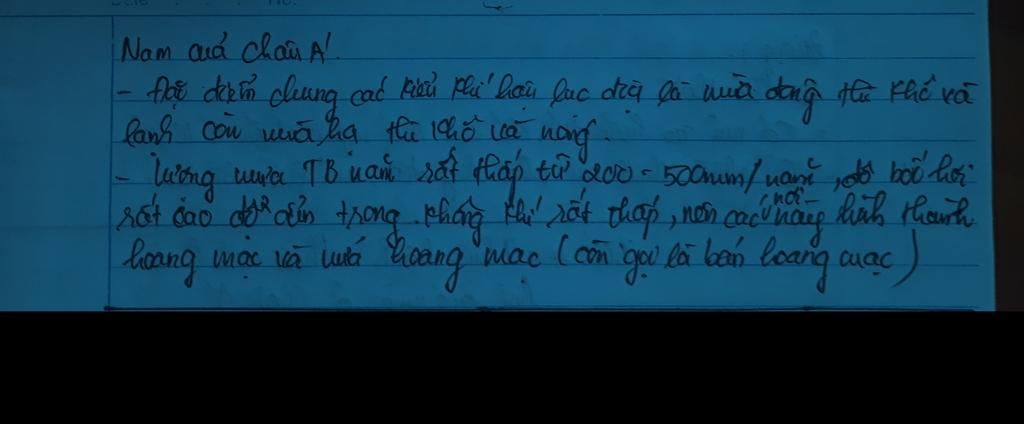 Nam quá Châu Á.
- Đặc điểm chung các kiểu khí hậu lục địa là mùa đông thì khô và
lạnh còn mùa hạ thì khô và nóng.
- lượng mưa TB năm rất thấp từ 200 - 500mm/năm, độ bốc hơi
rất cao độ ẩm trong không khí rất thấp, nên các nơi này hình thành
hoang mạc và nửa hoang mạc (còn gọi là bán hoang mạc)